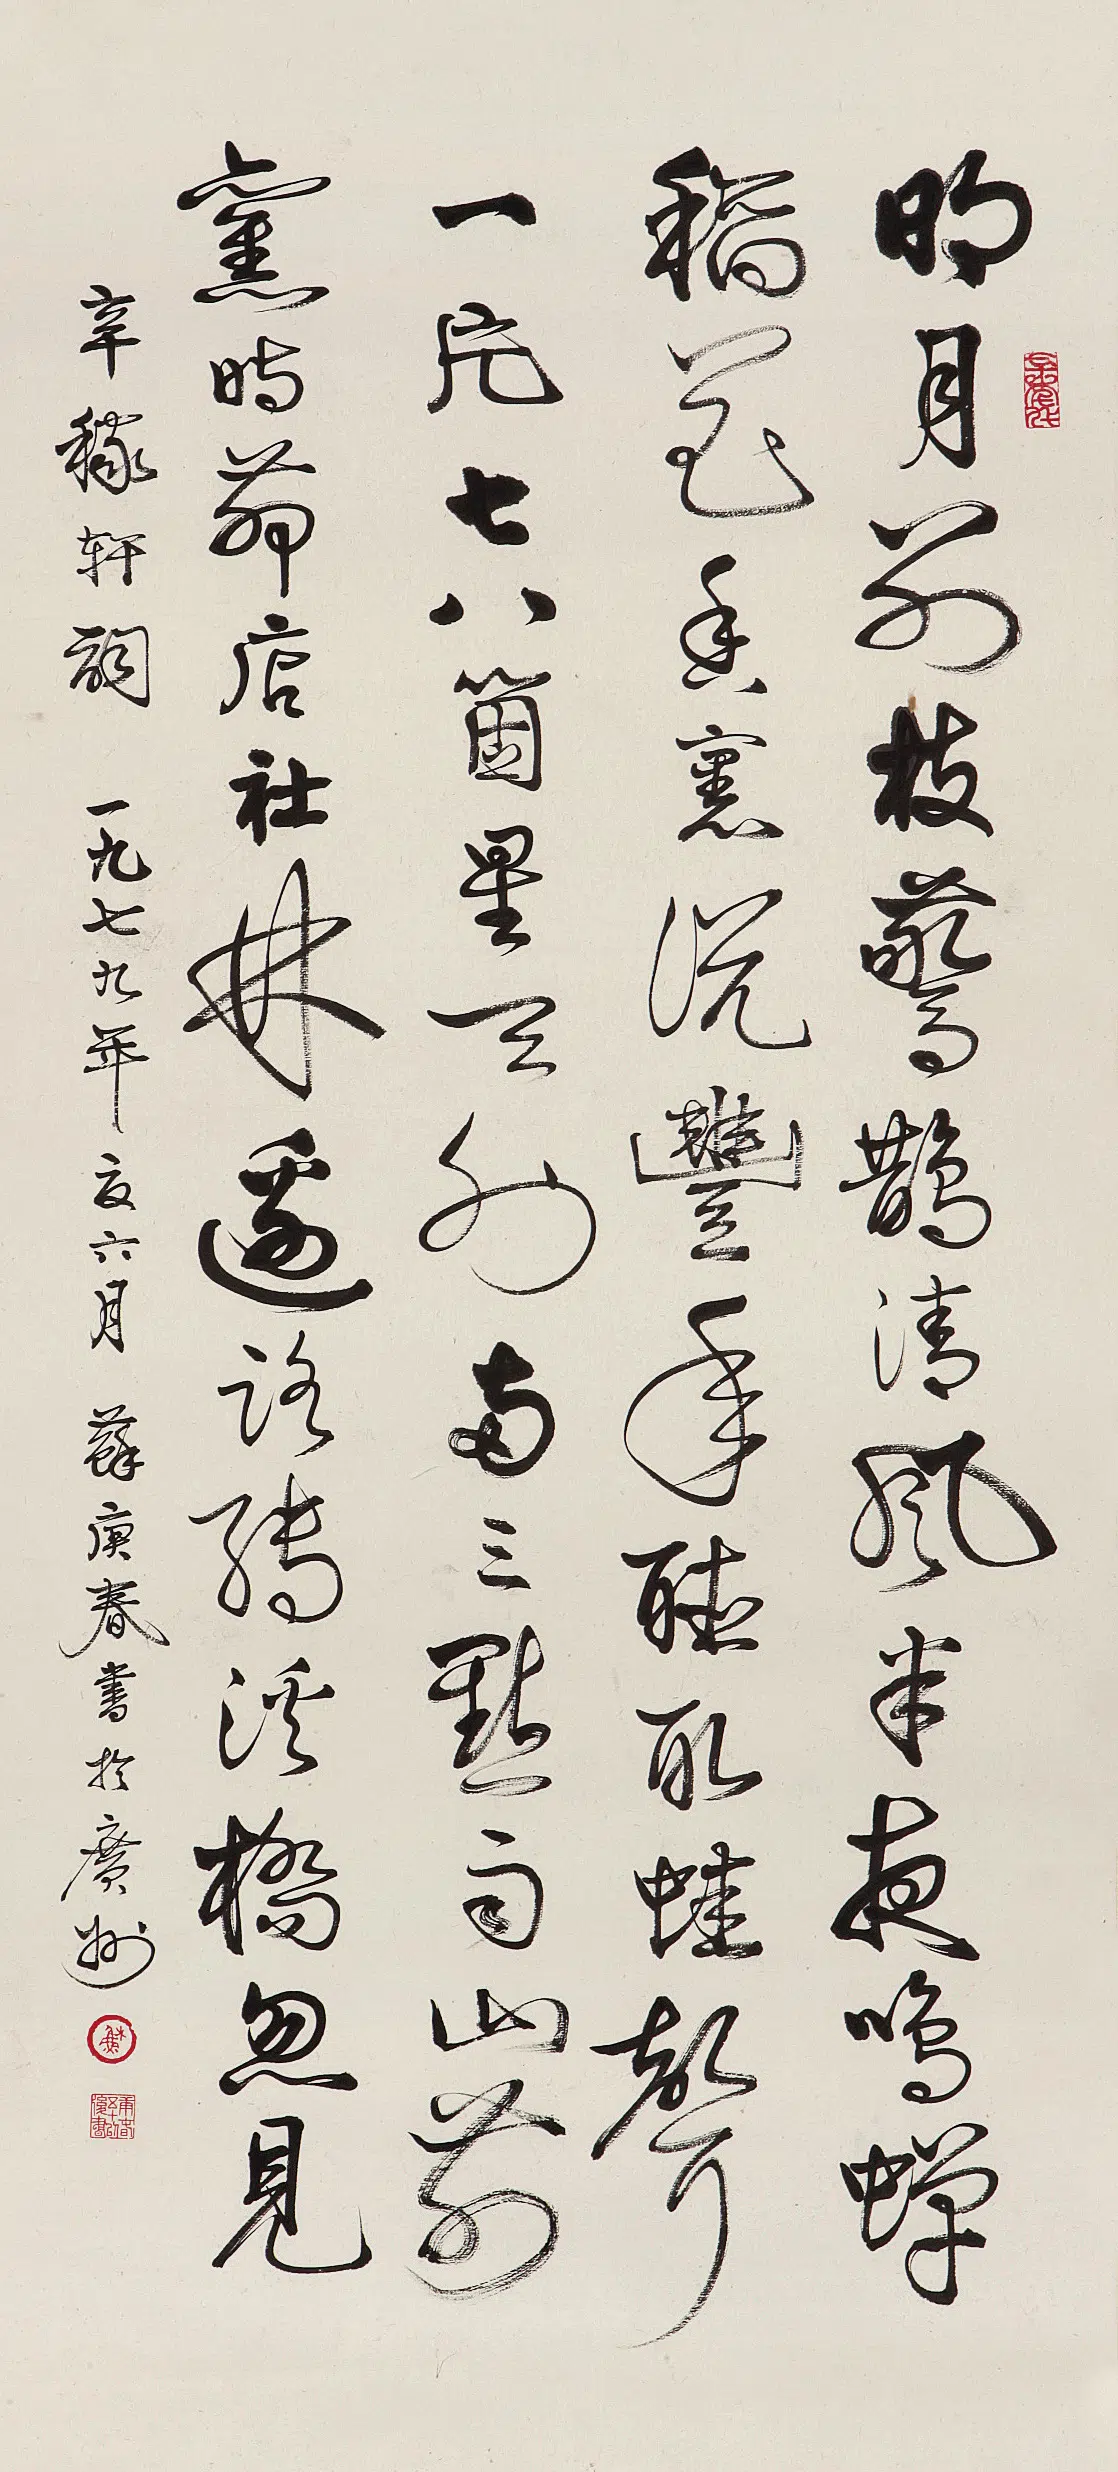 明月別枝驚鵲清風半夜鳴蟬
稻花香裏說豐年聽取蛙聲
一片七八箇星天外兩三點雨山前
舊時茅店社林邊路轉溪橋忽見
辛稼軒詞 一九七九年夏六月 蘇庚春書於廣州
蘇